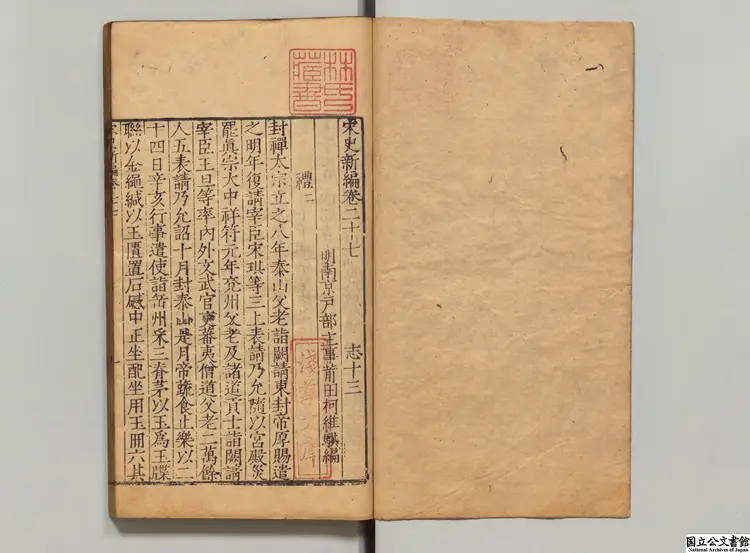 宋史新編卷二十七 志十三
明南京戶部主事莆田柯維騏編
禮二
封禪太宗立之八年泰山父老詣闕請東封帝厚賜遣
之明年復請宰臣宋琪等三上表請乃允隨以宮殿災
罷真宗大中祥符元年兗州父老及諸道貢士詣闕請
宰臣王旦等率內外文武官吏蕃夷僧道父老二萬餘
人五表請乃允詔十月封泰山是月帝蔬食止樂以二
十四日辛亥行事遣使詣岳州采三脊茅以玉爲玉牒
聯以金繩緘以玉匱置石䃭中正坐配坐用玉冊六其
宋史新編卷二十七
林氏藏書
淺草文庫
国立公文書館
National Archives of Japan